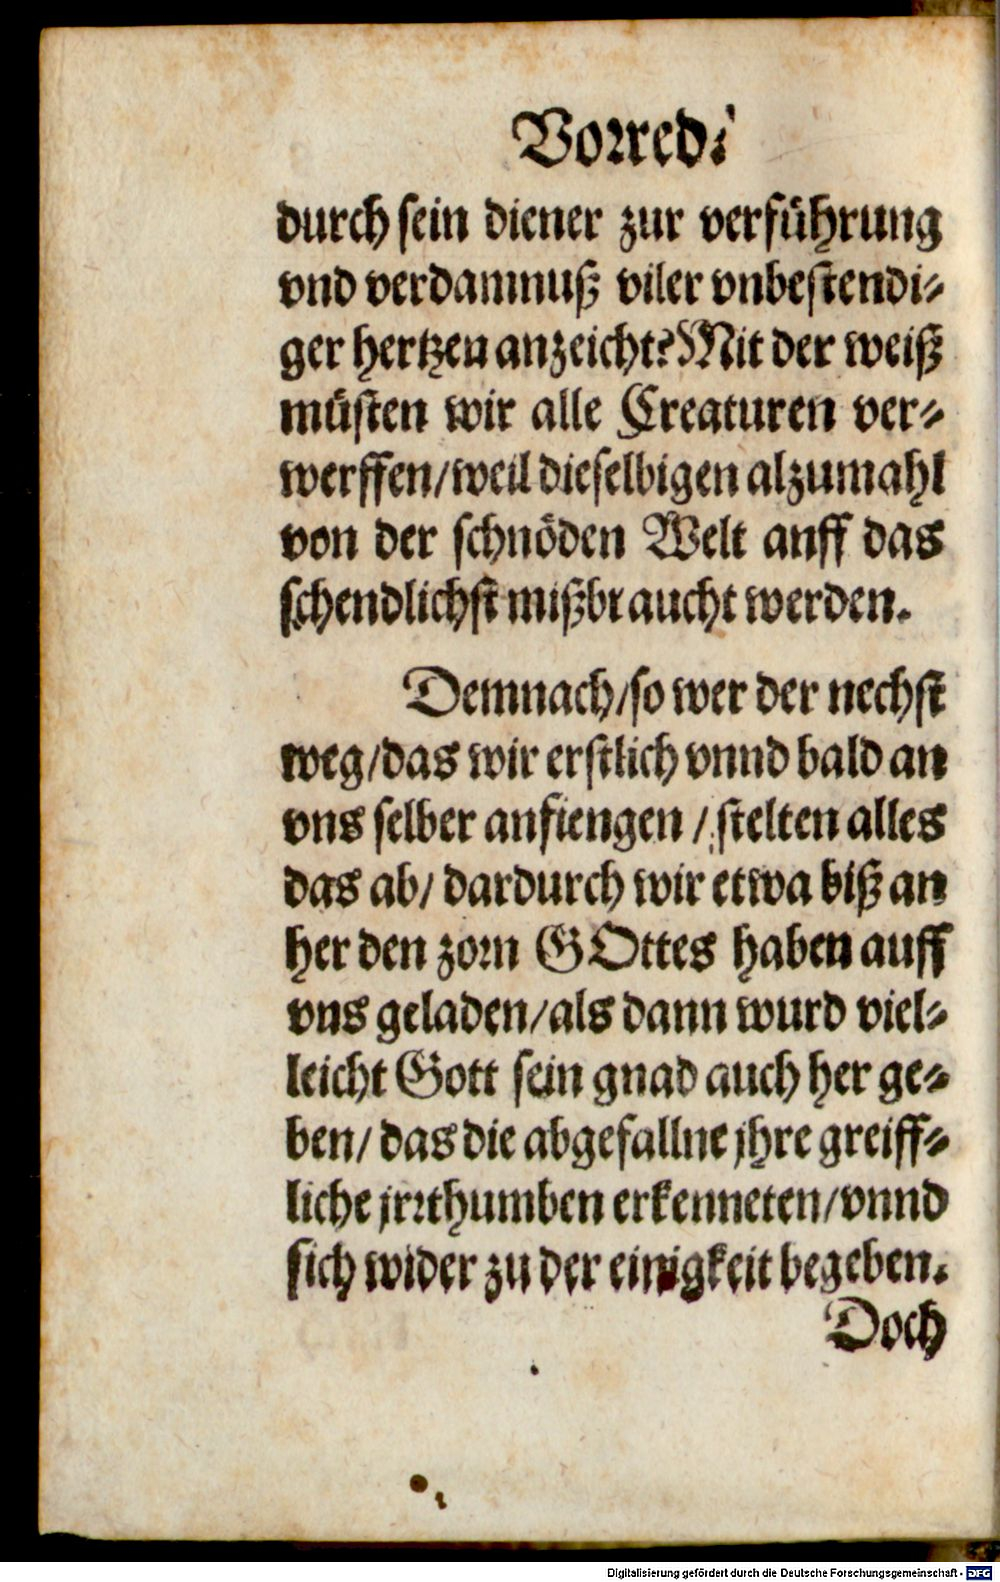 Vorred.
durch sein diener zur verführung
vnd verdamnuß viler vnbestendi-
ger hertzen anzeicht? Mit der weiß
müsten wir alle Creaturen ver-
werffen/weil dieselbigen alzumahl
von der schnöden Welt auff das
schendlichst mißbraucht werden.
Demnach/so wer der nechst
weg/das wir erstlich vnnd bald an
vns selber anfiengen / stelten alles
das ab/ dardurch wir etwa biß an
her den zorn GOttes haben auff
vns geladen/als dann wurd viel-
leicht Gott sein gnad auch her ge-
ben/ das die abgefallne jhre greiff-
liche jrrthumben erkenneten/vnnd
sich wider zu der einigkeit begeben.
Doch
Digitalisierung gefördert durch die Deutsche Forschungsgemeinschaft - DFG